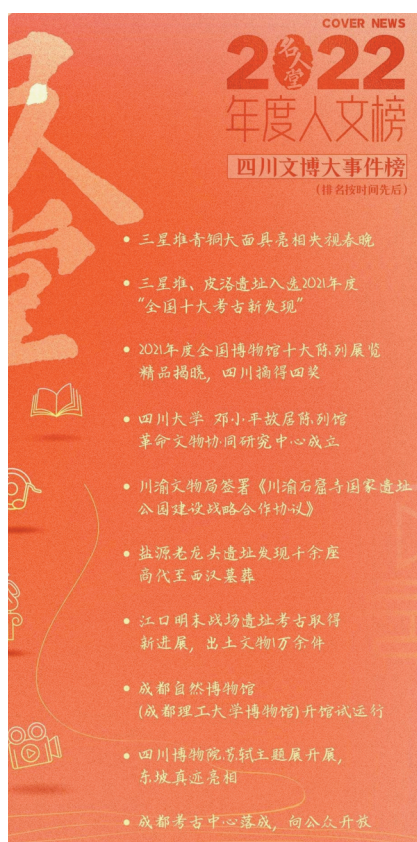 COVER NEWS
2022
名人堂
年度人文榜
四川文博大事件榜
(排名按时间先后)
人
堂
• 三星堆青铜大面具亮相央视春晚
• 三星堆、皮洛遗址入选2021年度
“全国十大考古新发现”
• 2021年度全国博物馆十大陈列展览
精品揭晓，四川摘得四奖
• 四川大学 邓小平故居陈列馆
革命文物协同研究中心成立
• 川渝文物局签署《川渝石窟寺国家遗址
公园建设战略合作协议》
• 盐源老龙头遗址发现千余座
商代至西汉墓葬
• 江口明末战场遗址考古取得
新进展，出土文物1万余件
• 成都自然博物馆
(成都理工大学博物馆)开馆试运行
• 四川博物院苏轼主题展开展，
东坡真迹亮相
• 成都考古中心落成，向公众开放